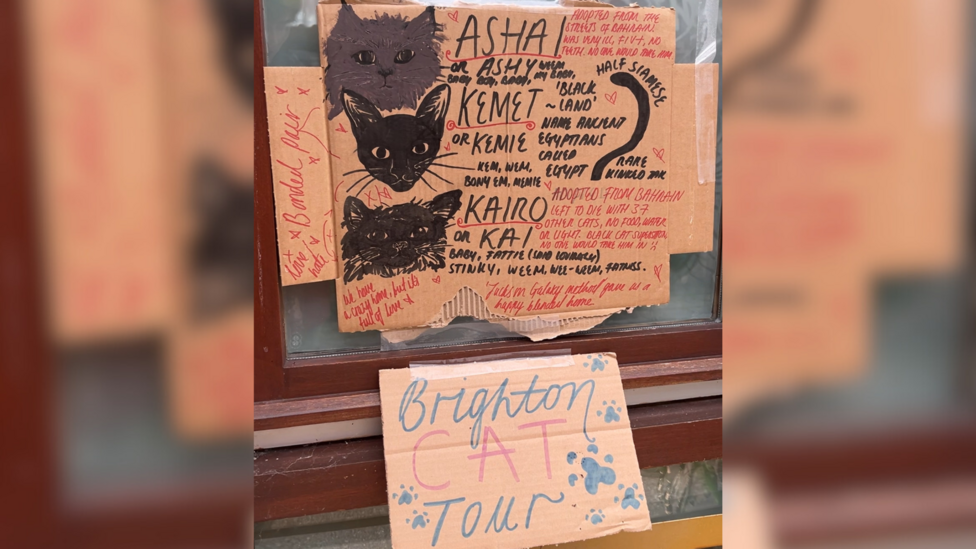 ASHA
OR ASHY WEEM,
BABY BOO, BOOP, MY BABY,
ADOPTED FROM THE
STREETS OF BAHRAIN.
WAS VERY ILL, FIV+, NO
TEETH. NO ONE WOULD TAKE HIM
HALF SIAMESE
KEMET
OR KEMIE
KEM, WEM,
BONY EM, MEMIE
'BLACK
~ LAND'
NAME ANCIENT
EGYPTIANS
CALLED
EGYPT
RARE
KINKED
x Bonded pair x
love
hate
KAIRO
OR KAI
BABY, FATTIE (SAID LOVINGLY)
STINKY, WEEM, WEE-WEEM, FATNESS.
ADOPTED FROM BAHRAIN
LEFT TO DIE WITH 37
OTHER CATS, NO FOOD, WATER
OR LIGHT. BLACK CAT SUPERSTITION,
NO ONE WOULD TAKE HIM IN :(
We have
a crazy home, but it's
full of love x
'Jackson Galaxy method gave us a
happy blended home
Brighton
CAT
TOUR